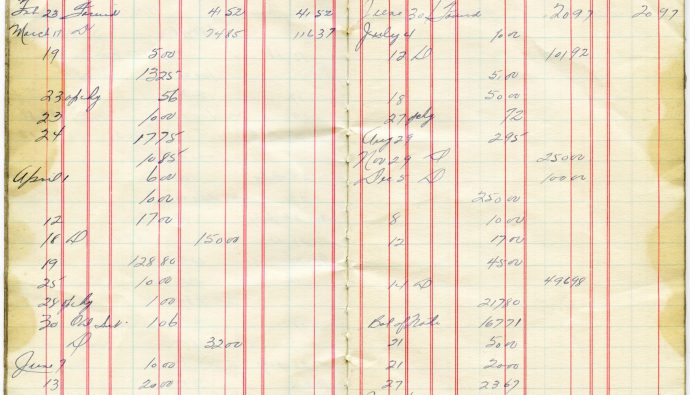 Feb 23 Found 4152 4152
March 11 D 7485 11637
19 500
1325
23 op chg 56
23 1000
24 1775
1085
April 1 600
1000
12 1700
18 D 15000
19 12880
25 1000
28 op chg 100
30 Int. 106
D 3200
June 7 1000
13 2000
June 30 Found 2097 2097
July 4 1000
12 D 10192
500
18 5000
27 chg 72
Aug 29 295
Nov 29 D 25000
Dec 5 D 10000
25000
8 1000
12 1700
4500
14 D 49698
21780
Bal of Note 16771
21 5000
21 2000
27 2367